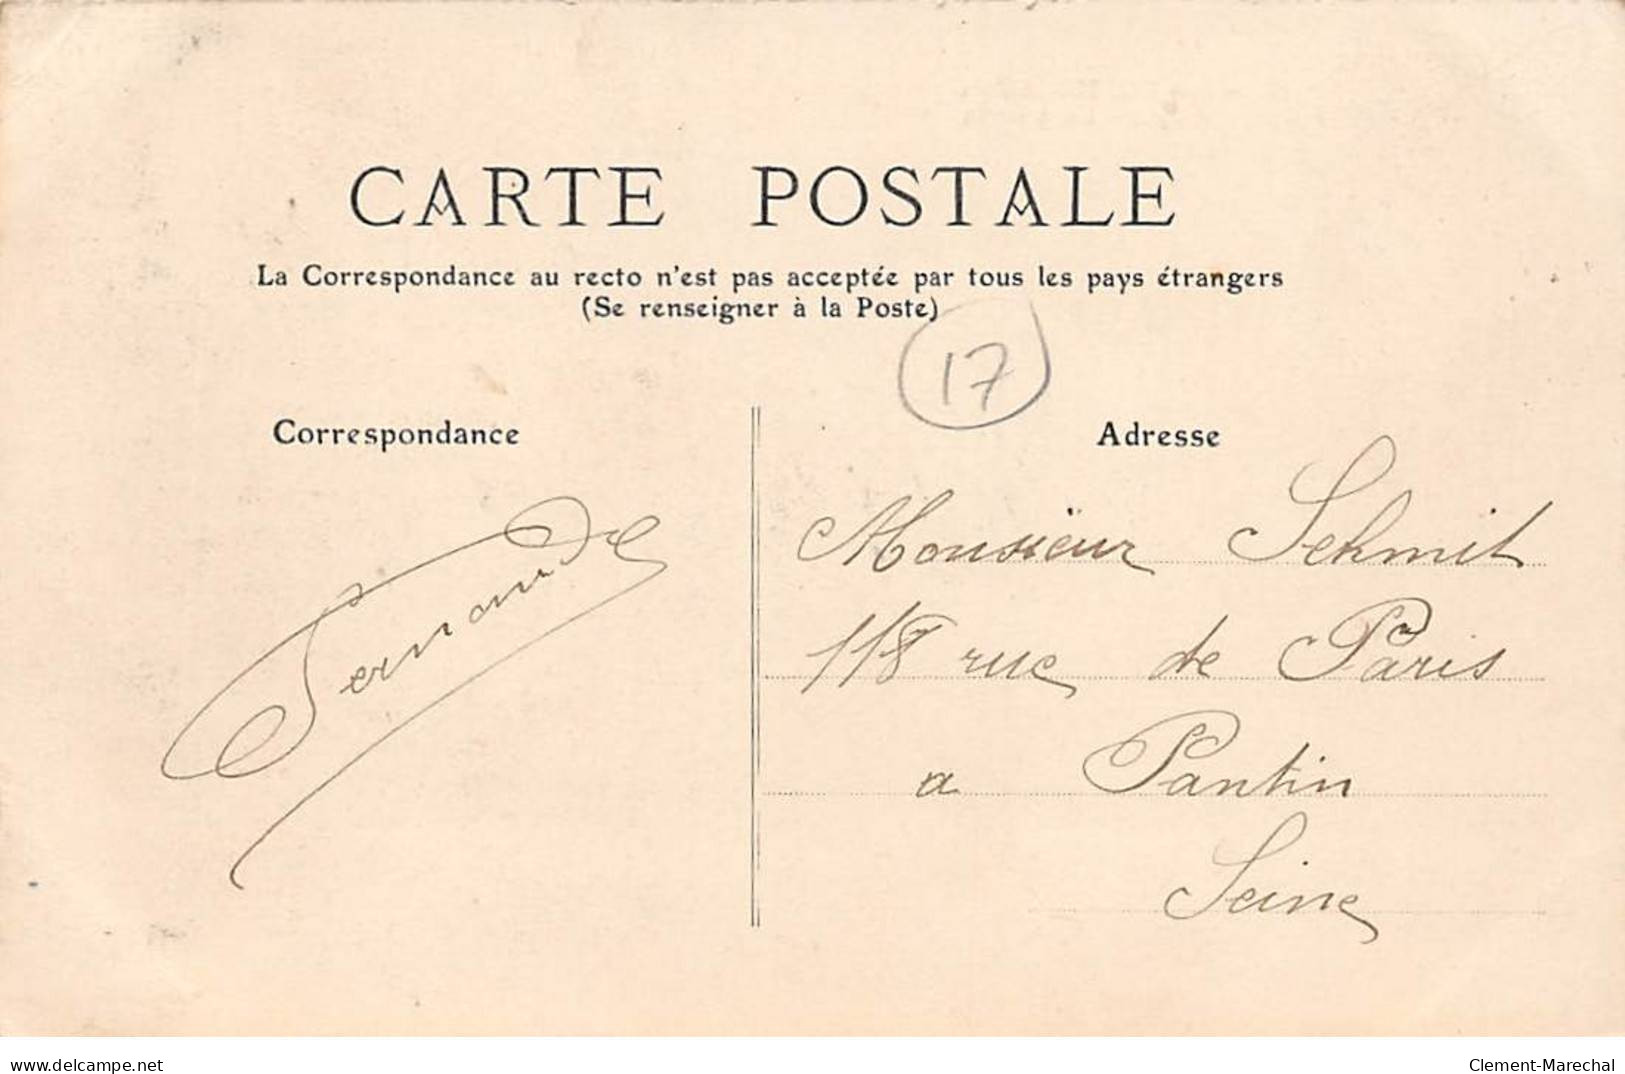 CARTE POSTALE
La Correspondance au recto n'est pas acceptée par tous les pays étrangers
(Se renseigner à la Poste)
17
Correspondance
Fernande
Adresse
Monsieur Schmit
118 rue de Paris
a Pantin
Seine
delcampe.net
Clement-Marechal